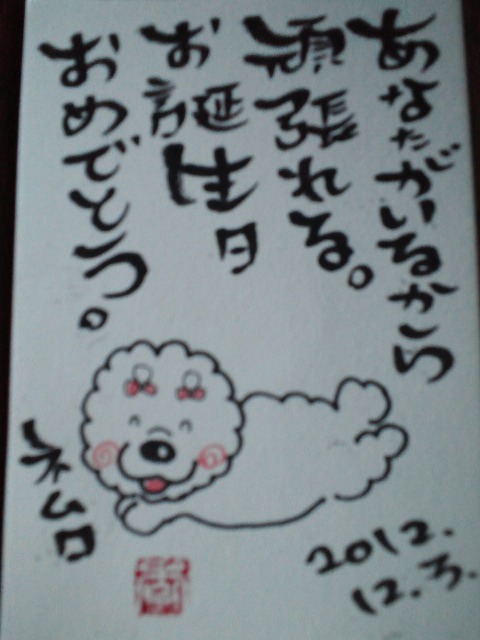 あなたがいるから
頑張れる。
お誕生日
おめでとう。
2012.
12.3.